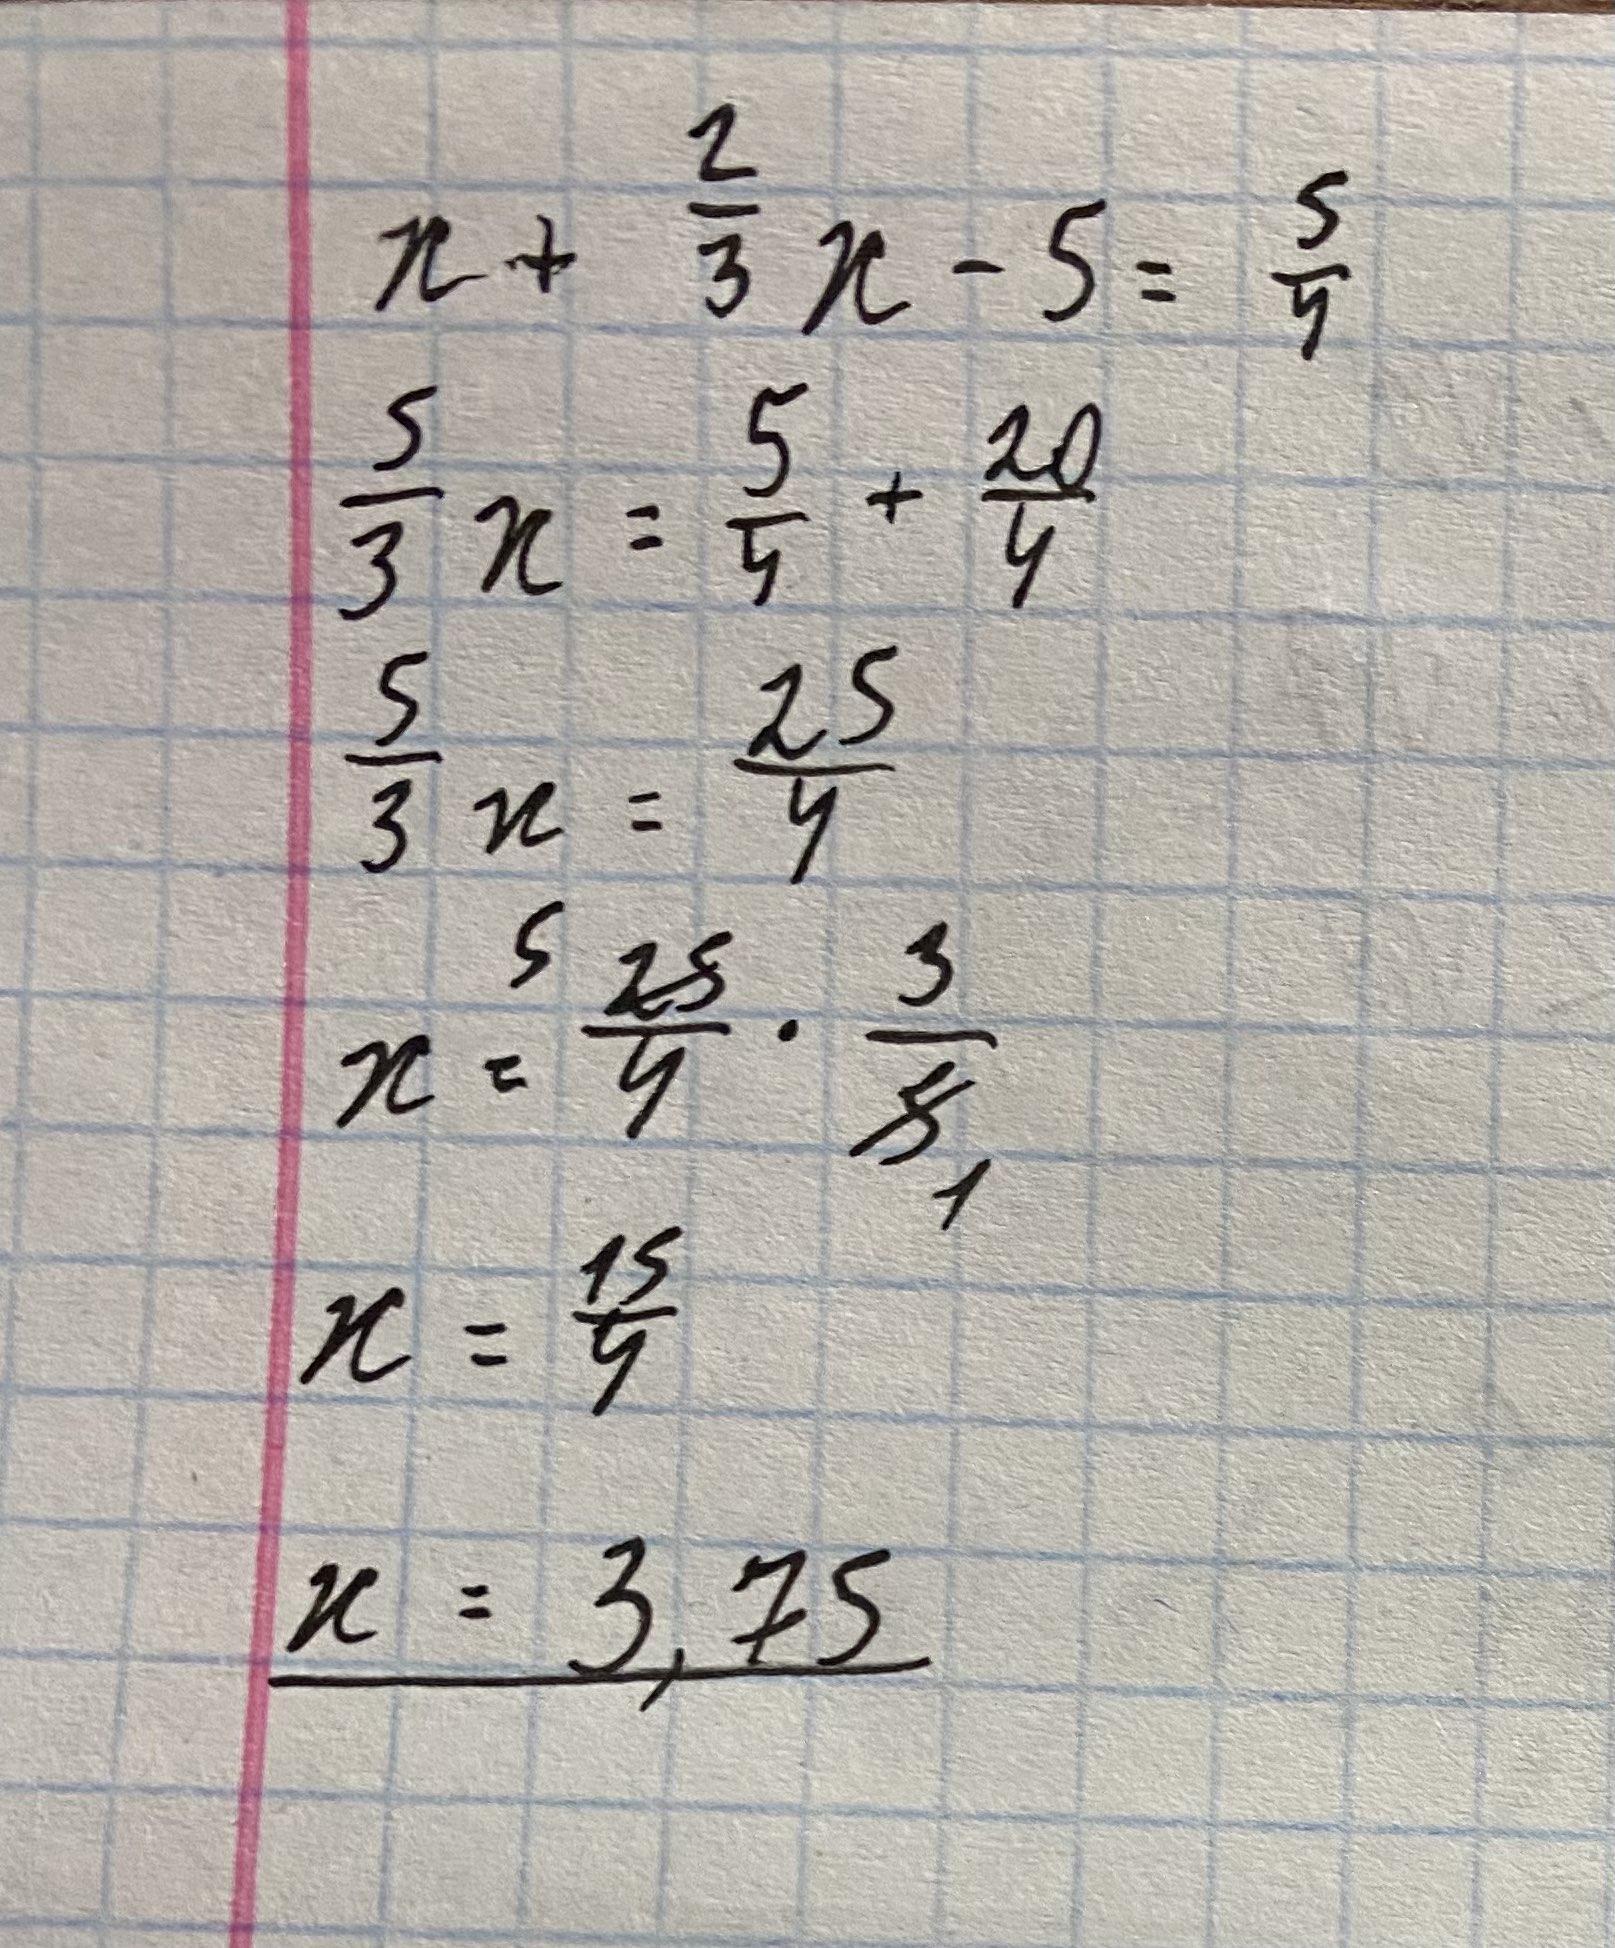 x + 2/3 x - 5 = 5/4
5/3 x = 5/4 + 20/4
5/3 x = 25/4
x = 5 25/4 · 3/5 1
x = 15/4
x = 3,75